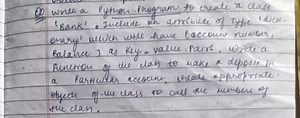 60 write a Python Program to create a class
"Bank". Include an attribute of type dicti-
onary which will have (account number,
balance) as key-value Pair. write a
Function of the class to make a deposit in
a Particular account, create appropriate
object of the class to call the members of
the class.